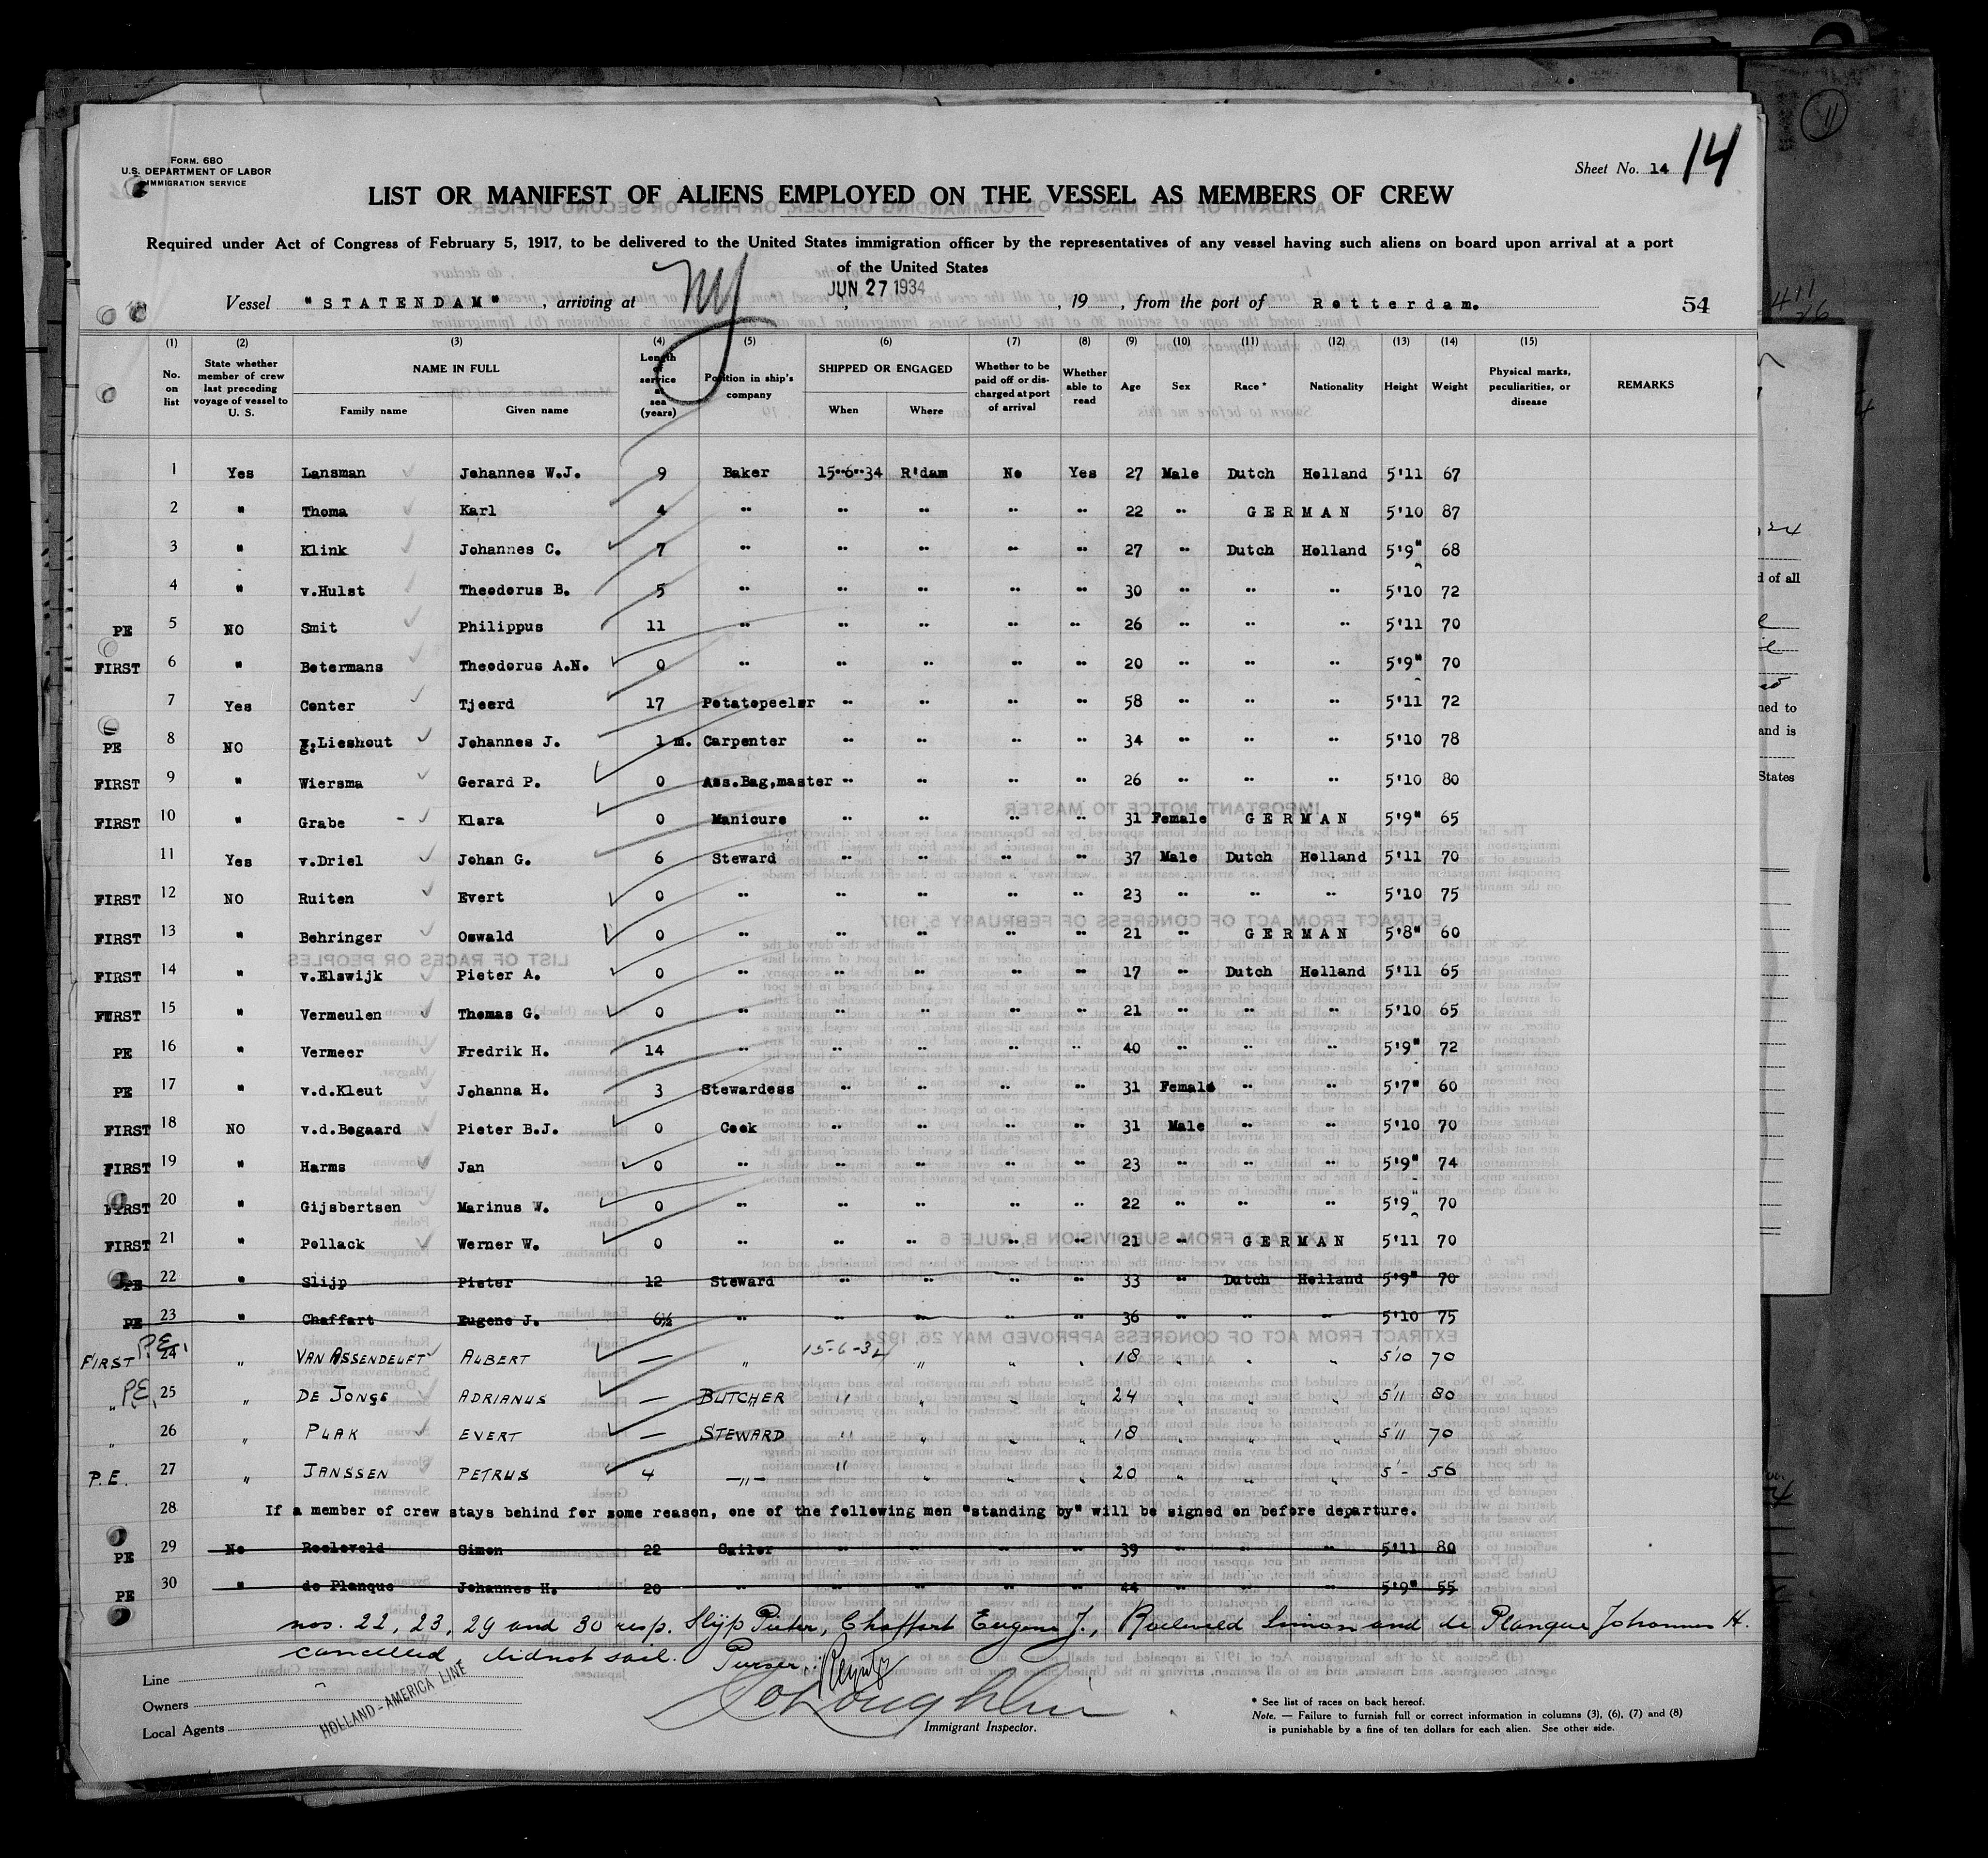 Form. 680
U.S. DEPARTMENT OF LABOR
IMMIGRATION SERVICE
Sheet No. 14 14
LIST OR MANIFEST OF ALIENS EMPLOYED ON THE VESSEL AS MEMBERS OF CREW
Required under Act of Congress of February 5, 1917, to be delivered to the United States immigration officer by the representatives of any vessel having such aliens on board upon arrival at a port
of the United States
Vessel "STATENDAM", arriving at NY JUN 27 1934, 19 , from the port of Rotterdam. 54
(1) (2) (3) (4) (5) (6) (7) (8) (9) (10) (11) (12) (13) (14) (15)
No. on list State whether member of crew last preceding voyage of vessel to U. S. NAME IN FULL Family name Given name Length of service at sea (years) Position in ship's company SHIPPED OR ENGAGED When Where Whether to be paid off or discharged at port of arrival Whether able to read Age Sex Race* Nationality Height Weight Physical marks, peculiarities, or disease REMARKS
1 Yes Lansman Johannes W.J. 9 Baker 15-6-34 R'dam No Yes 27 Male Dutch Holland 5'11 67
2 " Thoma Karl 4 " " " " " 22 " GERMAN 5'10 87
3 " Klink Johannes C. 7 " " " " " 27 " Dutch Holland 5'9" 68
4 " v.Hulst Theodorus B. 5 " " " " " 30 " " " 5'10 72
PE 5 NO Smit Philippus 11 " " " " " 26 " " " 5'11 70
FIRST 6 " Betermans Theodorus A.N. 0 " " " " " 20 " " " 5'9" 70
7 Yes Center Tjeerd 17 Potatopeeler " " " " 58 " " " 5'11 72
PE 8 NO v.Lieshout Johannes J. 1 m. Carpenter " " " " 34 " " " 5'10 78
FIRST 9 " Wiersma Gerard P. 0 Ass.Bag,master " " " " 26 " " " 5'10 80
FIRST 10 " Grabe - Klara 0 Manicure " " " " 31 Female GERMAN 5'9" 65
11 Yes v.Driel Johan G. 6 Steward " " " " 37 Male Dutch Holland 5'11 70
FIRST 12 NO Ruiten Evert 0 " " " " " 23 " " " 5'10 75
FIRST 13 " Behringer Oswald 0 " " " " " 21 " GERMAN 5'8" 60
FIRST 14 " v.Elswijk Pieter A. 0 " " " " " 17 " Dutch Holland 5'11 65
FIRST 15 " Vermeulen Thomas G. 0 " " " " " 21 " " " 5'10 65
PE 16 " Vermeer Fredrik H. 14 " " " " " 40 " " " 5'9" 72
PE 17 " v.d.Kleut Johanna H. 3 Stewardess " " " " 31 Female " " 5'7" 60
FIRST 18 NO v.d.Bogaard Pieter B.J. 0 Cook " " " " 31 Male " " 5'10 70
FIRST 19 " Harms Jan 0 " " " " " 23 " " " 5'9" 74
FIRST 20 " Gijsbertsen Marinus W. 0 " " " " " 22 " " " 5'9" 70
FIRST 21 " Pollack Werner W. 0 " " " " " 21 " GERMAN 5'11 70
PE 22 " Slijp Pieter 12 Steward " " " " 33 " Dutch Holland 5'9" 70
PE 23 " Chaffart Eugene J. 6½ " " " " " 36 " " " 5'10 75
FIRST P.E. 24 " VAN ASSENDELFT ALBERT — " 15-6-34 " " " 18 " " " 5'10 70
" P.E. 25 " DE JONGE ADRIANUS — BUTCHER " " " " 24 " " " 5'11 80
" 26 " PLAK EVERT — STEWARD " " " " 18 " " " 5'11 70
P.E. 27 " JANSSEN PETRUS 4 —"— " " " " 20 " " " 5'- 56
28 If a member of crew stays behind for some reason, one of the following men "standing by" will be signed on before departure.
PE 29 No Roeleveld Simon 22 Sailor " " " " 39 " " " 5'11 80
PE 30 " de Planque Johannes H. 20 " " " " " 44 " " " 5'9" 55
nos. 22, 23, 29 and 30 resp. Slijp Pieter, Chaffart Eugene J., Roeleveld Simon and de Planque Johannes H.
cancelled did not sail. Purser.
Line
Owners
Local Agents
HOLLAND-AMERICA LINE
Immigrant Inspector.
* See list of races on back hereof.
Note. — Failure to furnish full or correct information in columns (3), (6), (7) and (8)
is punishable by a fine of ten dollars for each alien. See other side.